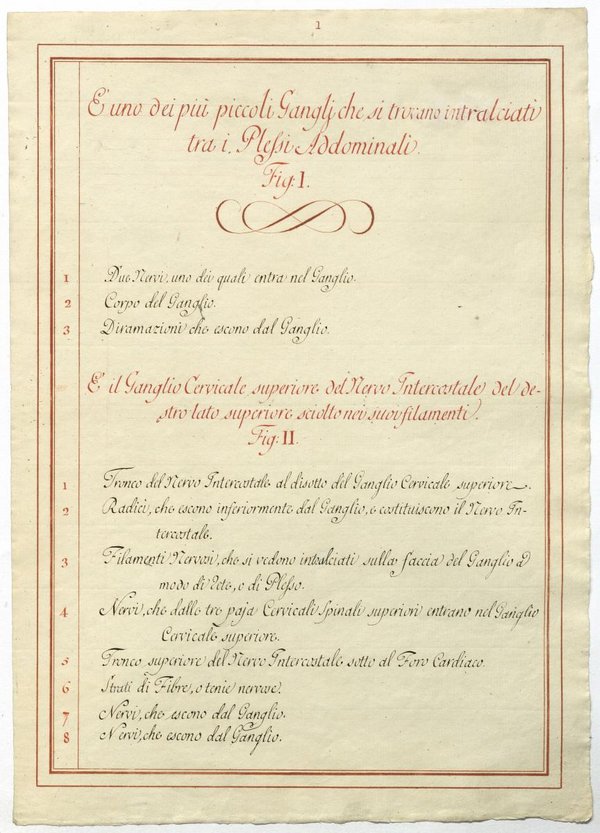 1
E' uno dei più piccoli Ganglj che si trovano intralciati
tra i Plessi Addominali.
Fig: I.
1 Due Nervi, uno dei quali entra nel Ganglio.
2 Corpo del Ganglio.
3 Diramazioni che escono dal Ganglio.
E' il Ganglio Cervicale superiore del Nervo Intercostale del de-
stro lato superiore sciolto nei suoi filamenti.
Fig: II.
1 Tronco del Nervo Intercostale al disotto del Ganglio Cervicale superiore.
2 Radici, che escono inferiormente dal Ganglio, e costituiscono il Nervo In-
tercostale.
3 Filamenti Nervosi, che si vedono intralciati sulla faccia del Ganglio a
modo di rete, o di Plesso.
4 Nervi, che dalle tre paja Cervicali Spinali superiori entrano nel Ganglio
Cervicale superiore.
5 Tronco superiore del Nervo Intercostale sotto al Foro Cardiaco.
6 Strati di Fibre, o tenie nervose.
7 Nervi, che escono dal Ganglio.
8 Nervi, che escono dal Ganglio.